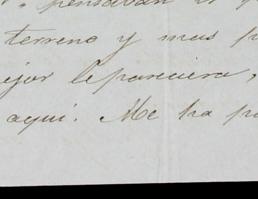 pensaban
terreno y mas p
ejor le pareciera,
aqui. Me ha p